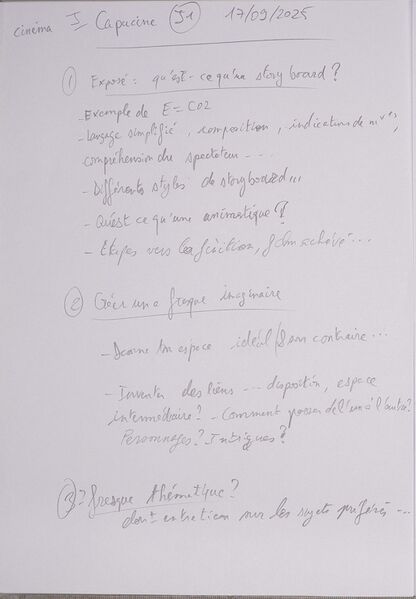 cinéma I Capucine J1 17/09/2025
① Exposé : qu'est-ce qu'un story board ?
- Exemple de E=CO2
- langage simplifié, composition, indications de mvts,
compréhension du spectateur ...
- Différents styles de storyboard...
- Qu'est ce qu'une animatique ?
- Etapes vers la finition, film achevé...
② Créer une fresque imaginaire
- Dessine ton espace idéal / Son contraire...
- Inventer des liens ... disposition, espace
intermédiaire ? - Comment passer de l'un à l'autre ?
Personnages ? Intrigues ?
③ ? fresque thématique ?
dont entretien sur les sujets préférés ...